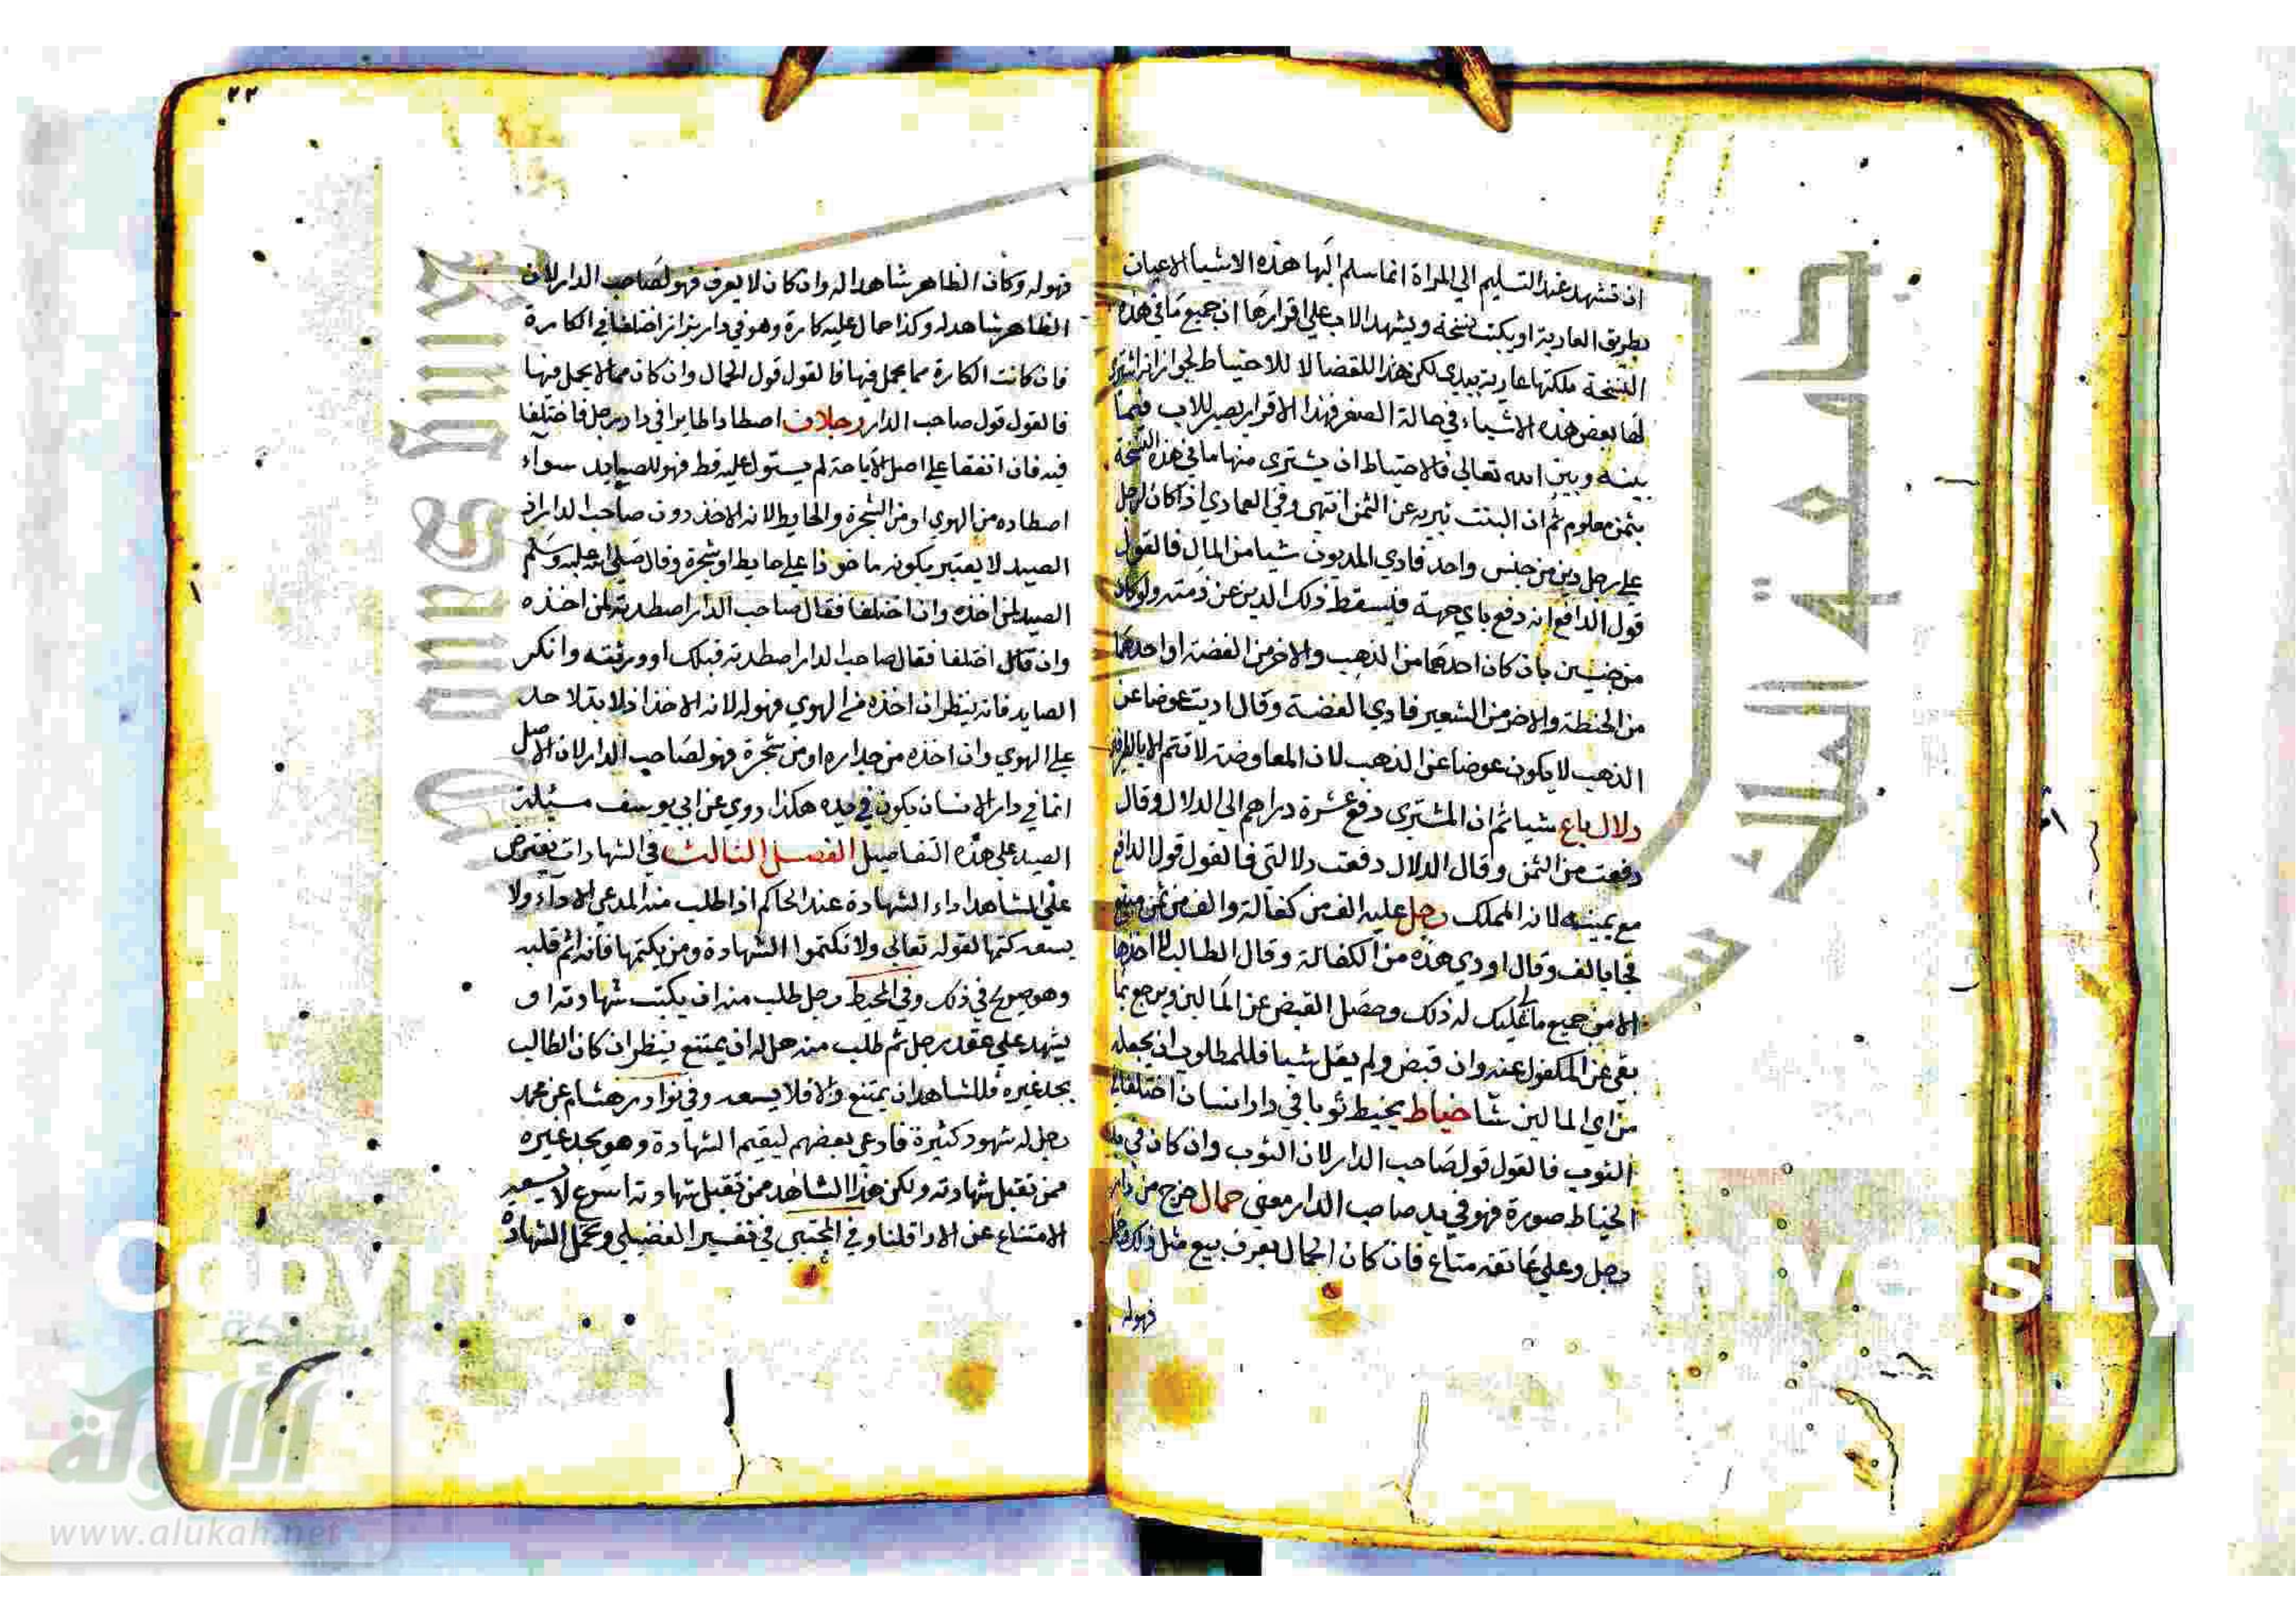 ان تشهد عند التسليم الي المراة انما سلم اليها هذه الاشيا الاعيان
بطريق العارية او يكتب نسخة ويشهد الاب علي اقرارها ان جميع ما في هذه
النسخة ملكتها عارية بيدي لكن هذا للقضا لا للاحتياط لجواز انه اشتري
لها بعض هذه الاشياء في حالة الصغر فهذا الاقرار يصير للاب فيما
بينه وبين الله تعالي فالاحتياط ان يشتري منها ما في هذه النسخة
بثمن معلوم ثم ان البنت تبريه عن الثمن انتهي وفي العمادي اذا كان لرجل
علي رجل دين من جنس واحد فادي المديون شيا من المال فالقول
قول الدافع انه دفع باي جهة فيسقط ذلك الدين عن ذمته ولو كان
من جنسين بان كان احدهما من الذهب والاخر من الفضة او احدهما
من الحنطة والاخر من الشعير فادي الفضة وقال اديت عوضا عن
الذهب لا يكون عوضا عن الذهب لان المعاوضة لا تتم الا بالطرفين
دلال باع شيا ثم ان المشتري دفع عشرة دراهم الي الدلال وقال
دفعت من الثمن وقال الدلال دفعت دلالتي فالقول قول الدافع
مع يمينه لانه المملك رجل عليه الف من كفالة والف من ثمن مبيع
فجا بالف وقال اودي هذه من الكفالة وقال الطالب لا اخذها
الا من جميع مالي عليك له ذلك وحصل القبض عن المالين ويرجع بما
بقي عن المكفول عنه وان قبض ولم يقل شيا فللمطلوب ان يجعله
من اي المالين شا خياط يخيط ثوبا في دار انسان اختلفا في
الثوب فالقول قول صاحب الدار لان الثوب وان كان في يد
الخياط صورة فهو في يد صاحب الدار معني حمال خرج من دار
رجل وعلي عاتقه متاع فان كان الحمال يعرف ببيع مثل ذلك
فهوله
٢٢
فهو له وكان الظاهر شاهدا له وان كان لا يعرف فهو لصاحب الدار لان
الظاهر شاهد له وكذا حمال عليه كارة وهو في دار بزاز اختلفا في الكارة
فان كانت الكارة مما يحمل فيها فالقول قول الحمال وان كان مما لا يحمل فيها
فالقول قول صاحب الدار رجلان اصطادا طايرا في دار رجل فاختلفا
فيه فان اتفقا علي اصل الاباحة لم يستول عليه قط فهو للصايد سواء
اصطاده من الهوي او من الشجرة والحايط لانه الاخذ دون صاحب الدار اذ
الصيد لا يعتبر بكونه ماخوذا علي حايط او شجرة وقال صلي الله عليه وسلم
الصيد لمن اخذه وان اختلفا فقال صاحب الدار اصطدته لمن اخذه
وان قال اختلفا فقال صاحب الدار اصطدته قبلك او ورثته وانكر
الصايد فانه ينظر ان اخذه من الهوي فهو له لانه الاخذ اذ لا يد لاحد
علي الهوي وان اخذه من جداره او من شجرة فهو لصاحب الدار لان الاصل
انما في دار الانسان يكون في يده هكذا روي عن ابي يوسف مسئلة
الصيد علي هذه التفاصيل الفصل الثالث في الشهادات يفترض
علي الشاهد اداء الشهادة عند الحاكم اذا طلب منه المدعي الاداء ولا
يسعه كتمها لقوله تعالي ولا تكتموا الشهادة ومن يكتمها فانه اثم قلبه
وهو صريح في ذلك وفي المحيط رجل طلب منه ان يكتب شهادته او
يشهد علي عقد رجل ثم طلب منه هل له ان يمتنع ينظر ان كان الطالب
يجد غيره فللشاهد ان يمتنع والا فلا يسعه وفي نوادر هشام عن محمد
رجل له شهود كثيرة فادعي بعضهم ليقيم الشهادة وهو يجد غيره
ممن تقبل شهادته ولكن هذا الشاهد ممن تقبل شهادته اسرع لا يسعه
الامتناع عن الادا قلنا وفي المجتبي في تفسير الفضيلي وتحمل الشهادة
جامعة الملك سعود
Copyright University
شبكة
الألوكة
www.alukah.net